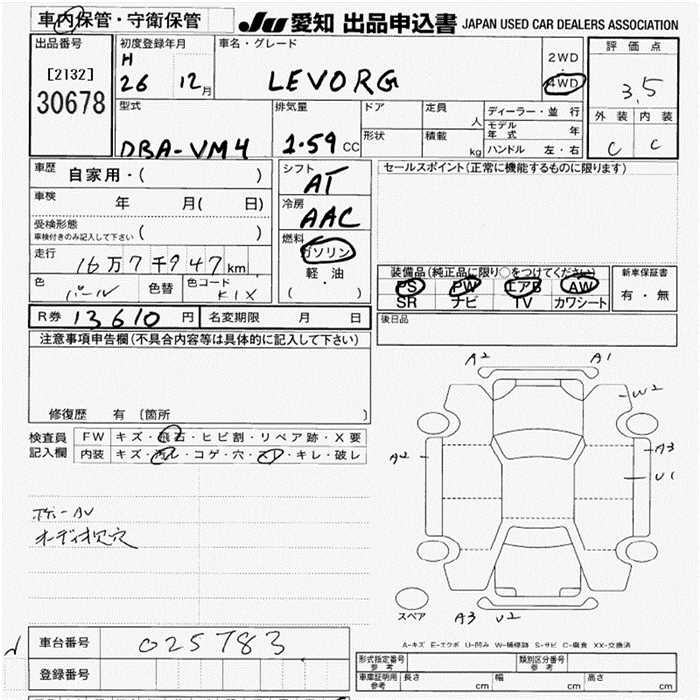 車内保管・守衛保管 JU 愛知 出品申込書 JAPAN USED CAR DEALERS ASSOCIATION
出品番号 初度登録年月 車名・グレード 2WD 評価点
[2132] H LEVORG 4WD 3.5
30678 26 12月
外装 内装
型式 排気量 ドア 定員 人 ディーラー・並行
モデル年式 年
DBA-VM4 1.59 CC 形状 積載 kg ハンドル 左・右 C C
車歴 自家用・( ) シフト AT セールスポイント(正常に機能するものに限ります)
車検 年 月( 日) 冷房 AAC
受検形態
車検付きのみ記入して下さい ( ) 燃料
走行 16万7千947km ガソリン 装備品(純正品に限り○をつけてください) 新車保証書
色 パール 色替 色コード K1X 軽・油 PS PW エアB AW 有・無
( ) SR ナビ TV カワシート
R券 13610 円 名変期限 月 日 後日品
注意事項申告欄(不具合内容等は具体的に記入して下さい)
修復歴 有 (箇所 )
検査員 FW キズ・飛石・ヒビ割・リペア跡・X要
記入欄 内装 キズ・汚レ・コゲ・穴・スレ・キレ・破レ
A2 A1
W2
A2 A3
U1
オーディオ欠穴
スペア A3 U2
A-キズ E-エクボ U-凹み W-補修跡 S-サビ C-腐食 XX-交換済
車台番号 025783
登録番号
形式指定番号 参考 類別区分番号 参考
車庫証明用 参考 長さ cm 幅 cm 高さ cm